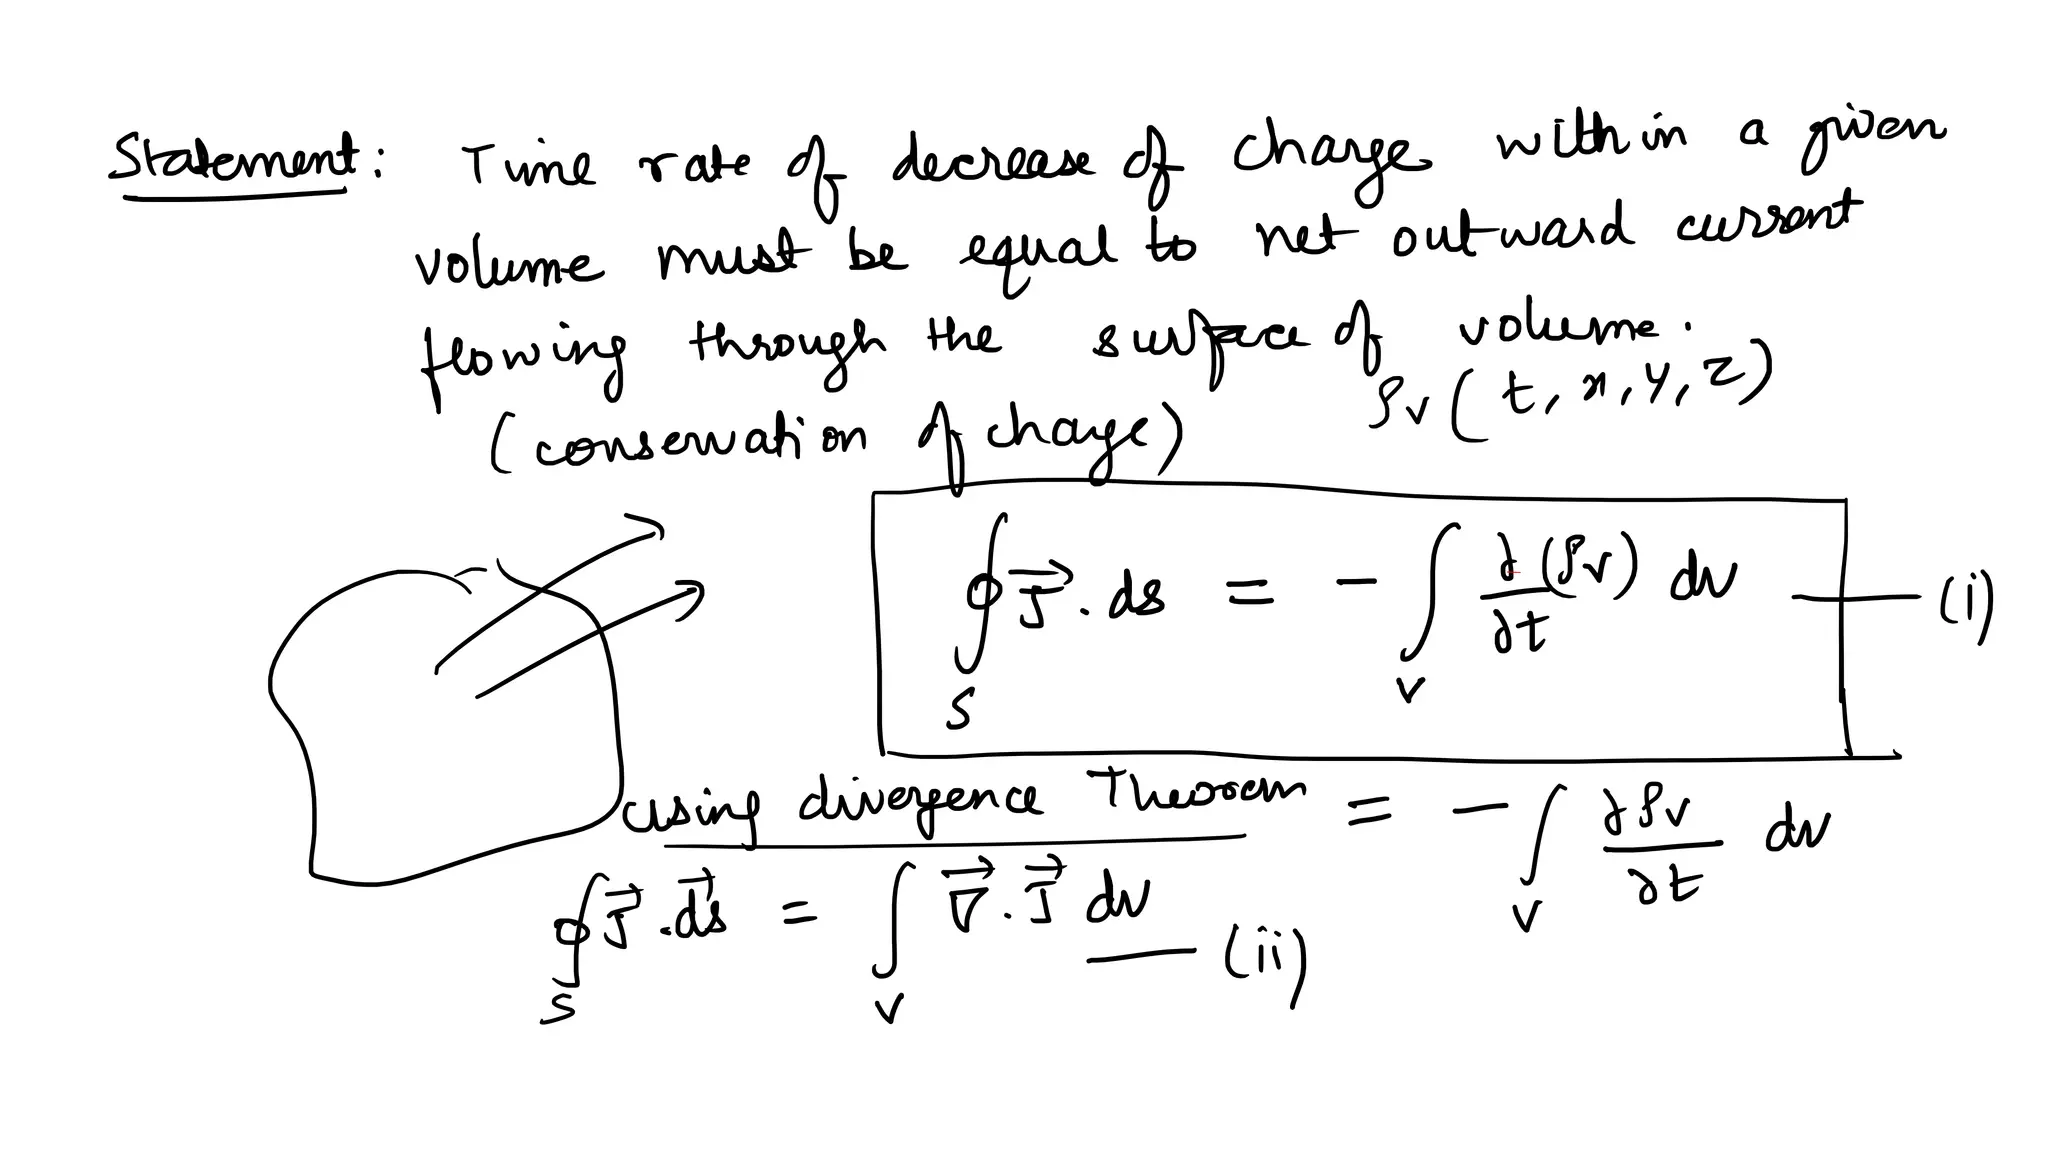 Statement: Time rate of decrease of charge within a given
volume must be equal to net outward current
flowing through the surface of volume.
ρv (t, x, y, z)
(conservation of charge)
∮_S J⃗ . ds = - ∫_V ∂(ρv)/∂t dv —— (i)
using divergence Theorem = - ∫_V ∂ρv/∂t dv
∮_S J⃗ . ds⃗ = ∫_V ∇⃗ . J⃗ dv —— (ii)